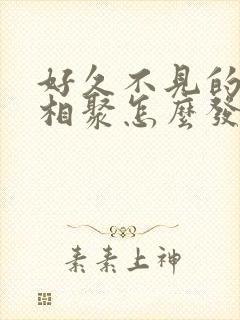 好久不見的
相聚怎麼發
素素上神